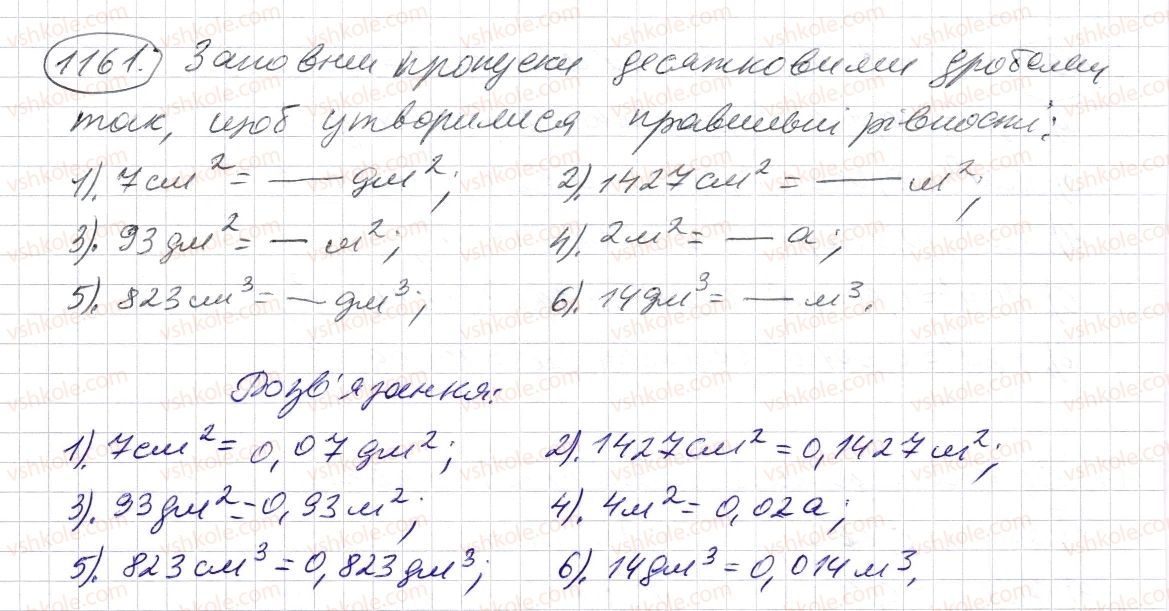 1161. Заповни пропуски десятковими дробами
так, щоб утворилися правильні рівності:
1). 7см² = — дм²; 2). 1427см² = — м²;
3). 93дм² = — м²; 4). 2м² = — а;
5). 823см³ = — дм³; 6). 14дм³ = — м³.
Розв'язання:
1). 7см² = 0,07дм²; 2). 1427см² = 0,1427м²;
3). 93дм² = 0,93м²; 4). 4м² = 0,02а;
5). 823см³ = 0,823дм³; 6). 14дм³ = 0,014м³.